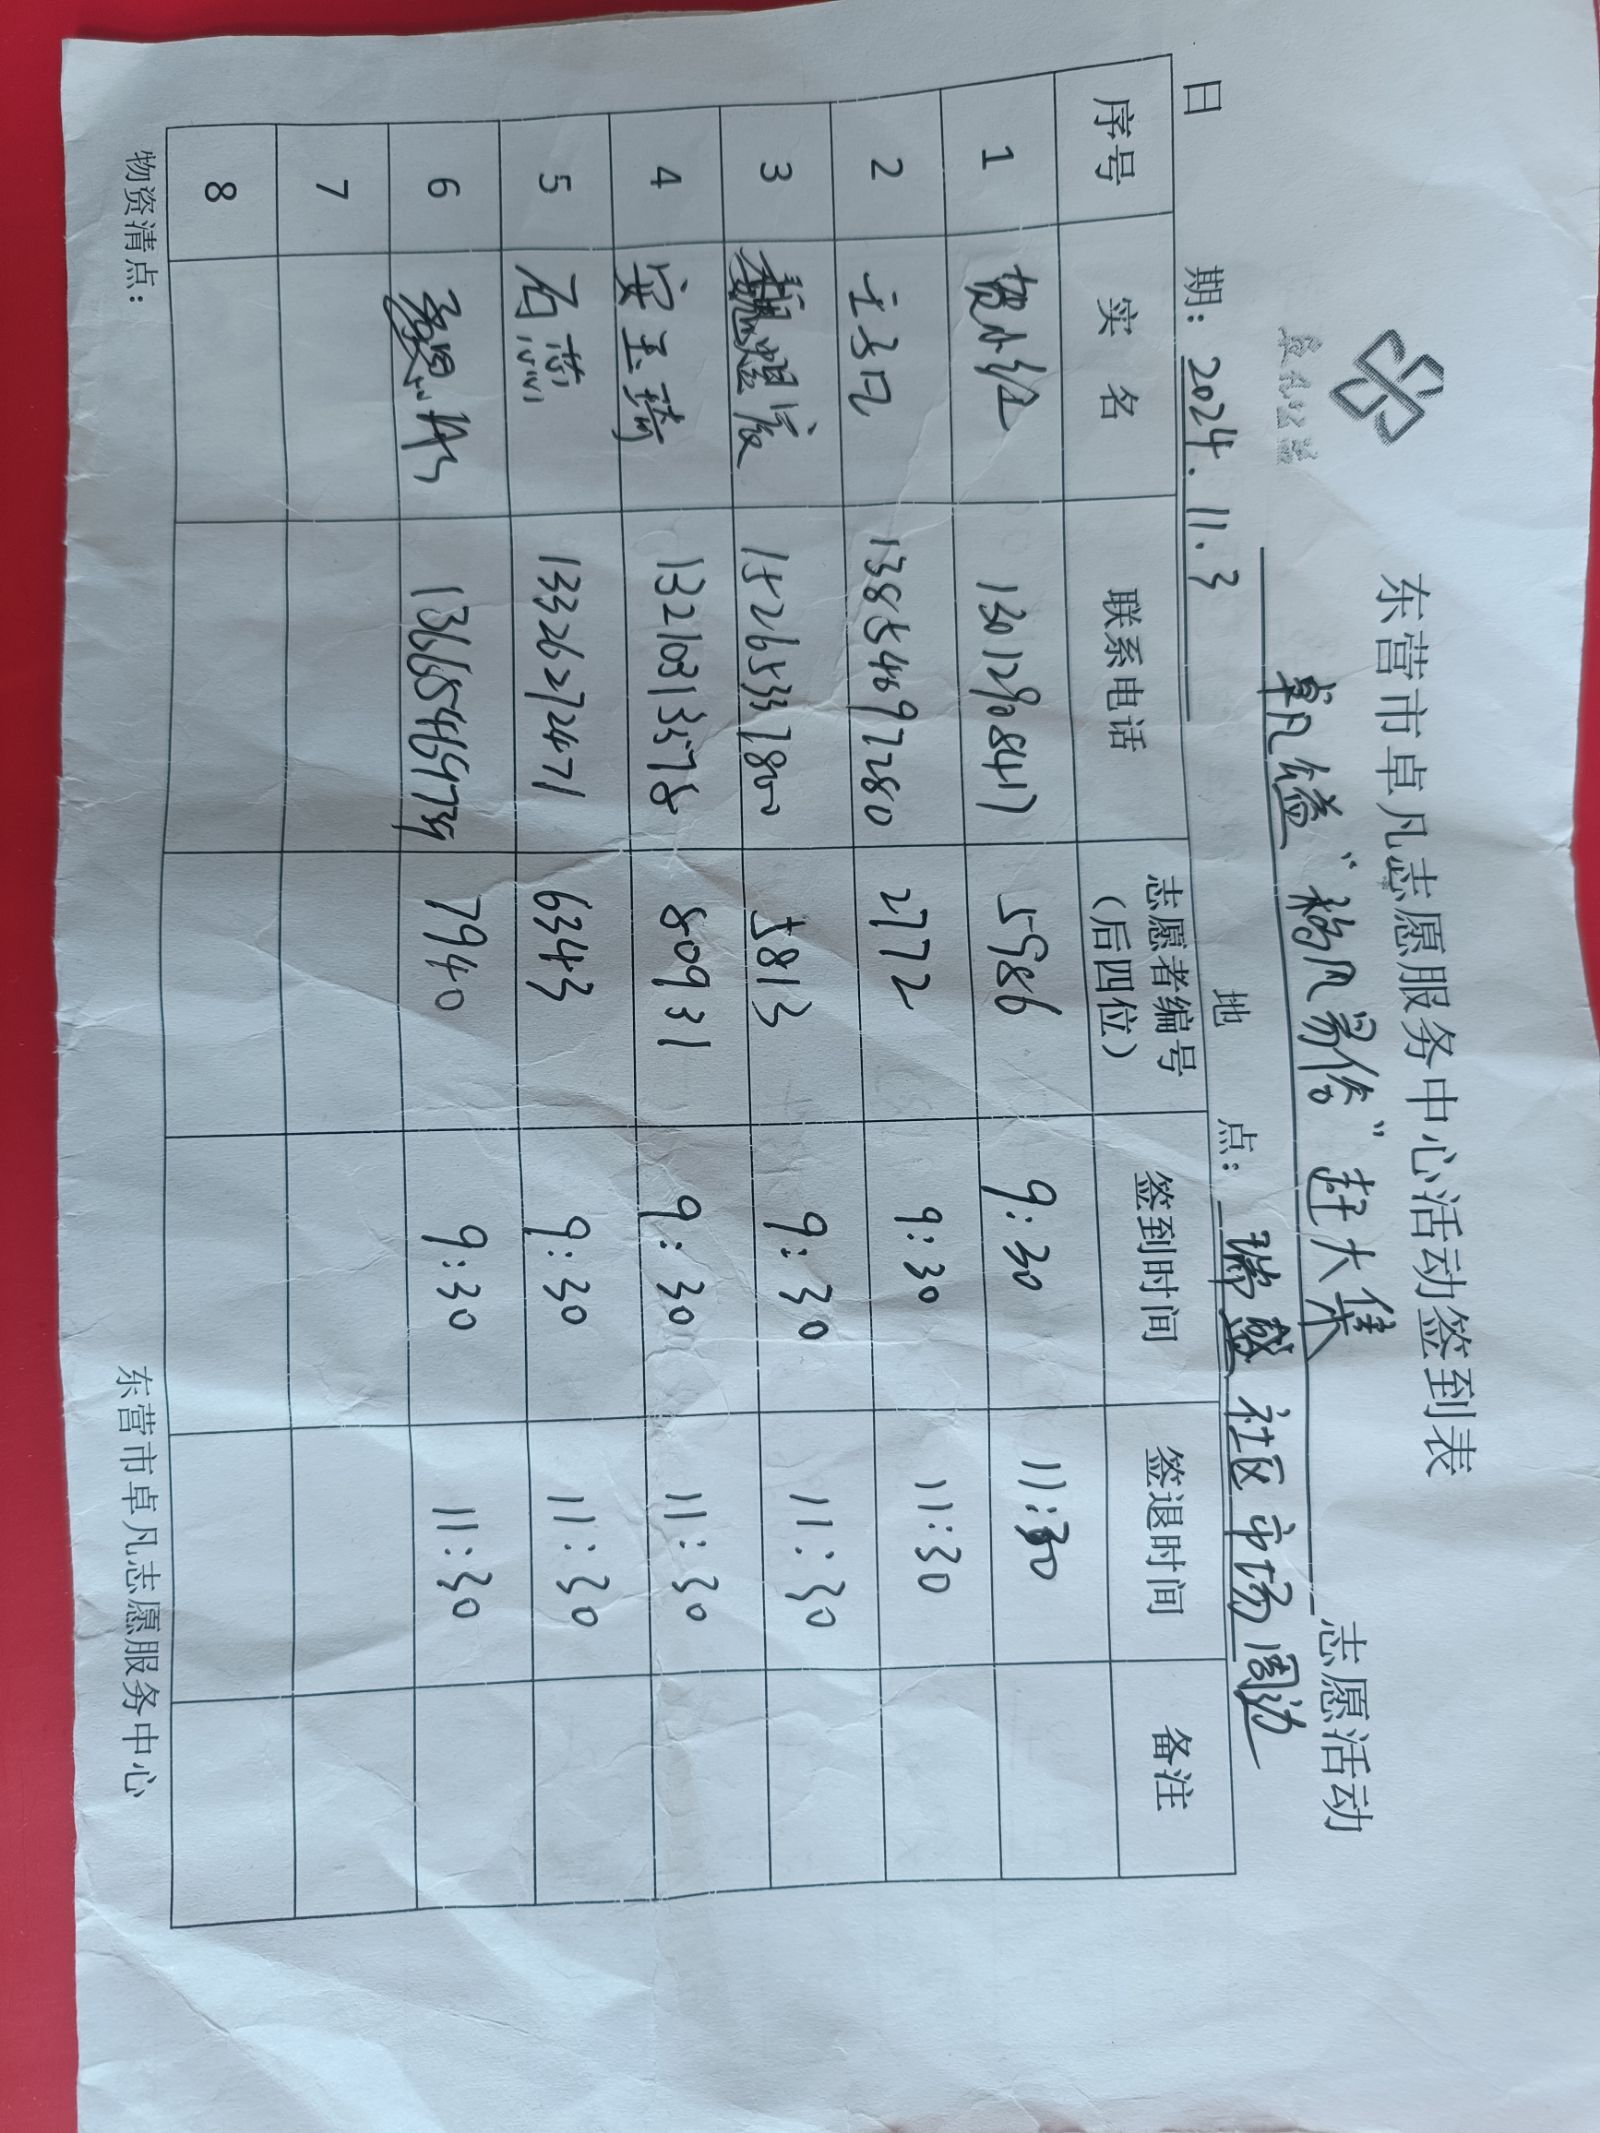 东营市卓凡志愿服务中心活动签到表
卓凡公益“移风易俗”赶大集 志愿活动
日 期：2024.11.3 地 点：瑞盛社区市场周边
序号 实 名 联系电话 志愿者编号（后四位） 签到时间 签退时间 备注
1 13012908417 5986 9:30 11:30
2 13854697280 2172 9:30 11:30
3 15265337800 5813 9:30 11:30
4 安玉琦 13210313578 80931 9:30 11:30
5 石蕊 13326272471 6343 9:30 11:30
6 7940 9:30 11:30
7
8
物资清点： 东营市卓凡志愿服务中心